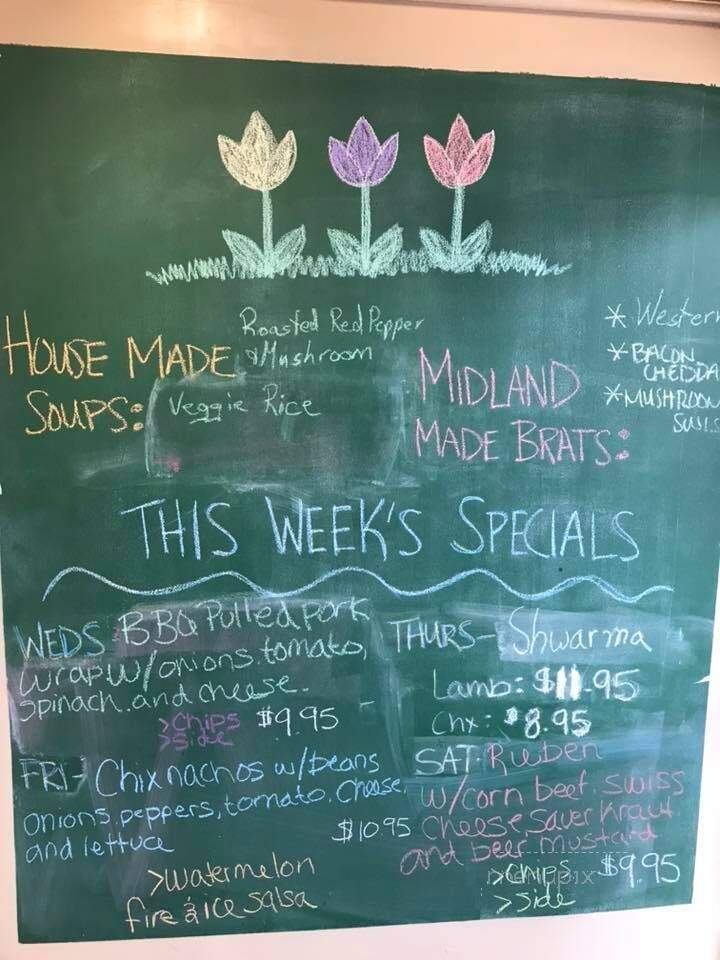 HOUSE MADE
SOUPS:
Roasted Red Pepper
& Mushroom
Veggie Rice
MIDLAND
MADE BRATS:
* Western
* BACON
CHEDDA
* MUSHROOM
SWIS
THIS WEEK'S SPECIALS
WEDS BBQ Pulled pork
wrap w/ onions. tomato,
spinach. and cheese.
>Chips
>Side
$9.95
THURS- Shwarma
Lamb: $11.95
Chx: $8.95
FRI- Chix nachos w/ beans
onions, peppers, tomato. Cheese.
and lettuce
$10.95
>watermelon
fire & ice salsa
SAT: Rueben
w/ corn beef. swiss
cheese, sauer kraut
and beer mustard
>CHIPS
>Side
$9.95
menupix